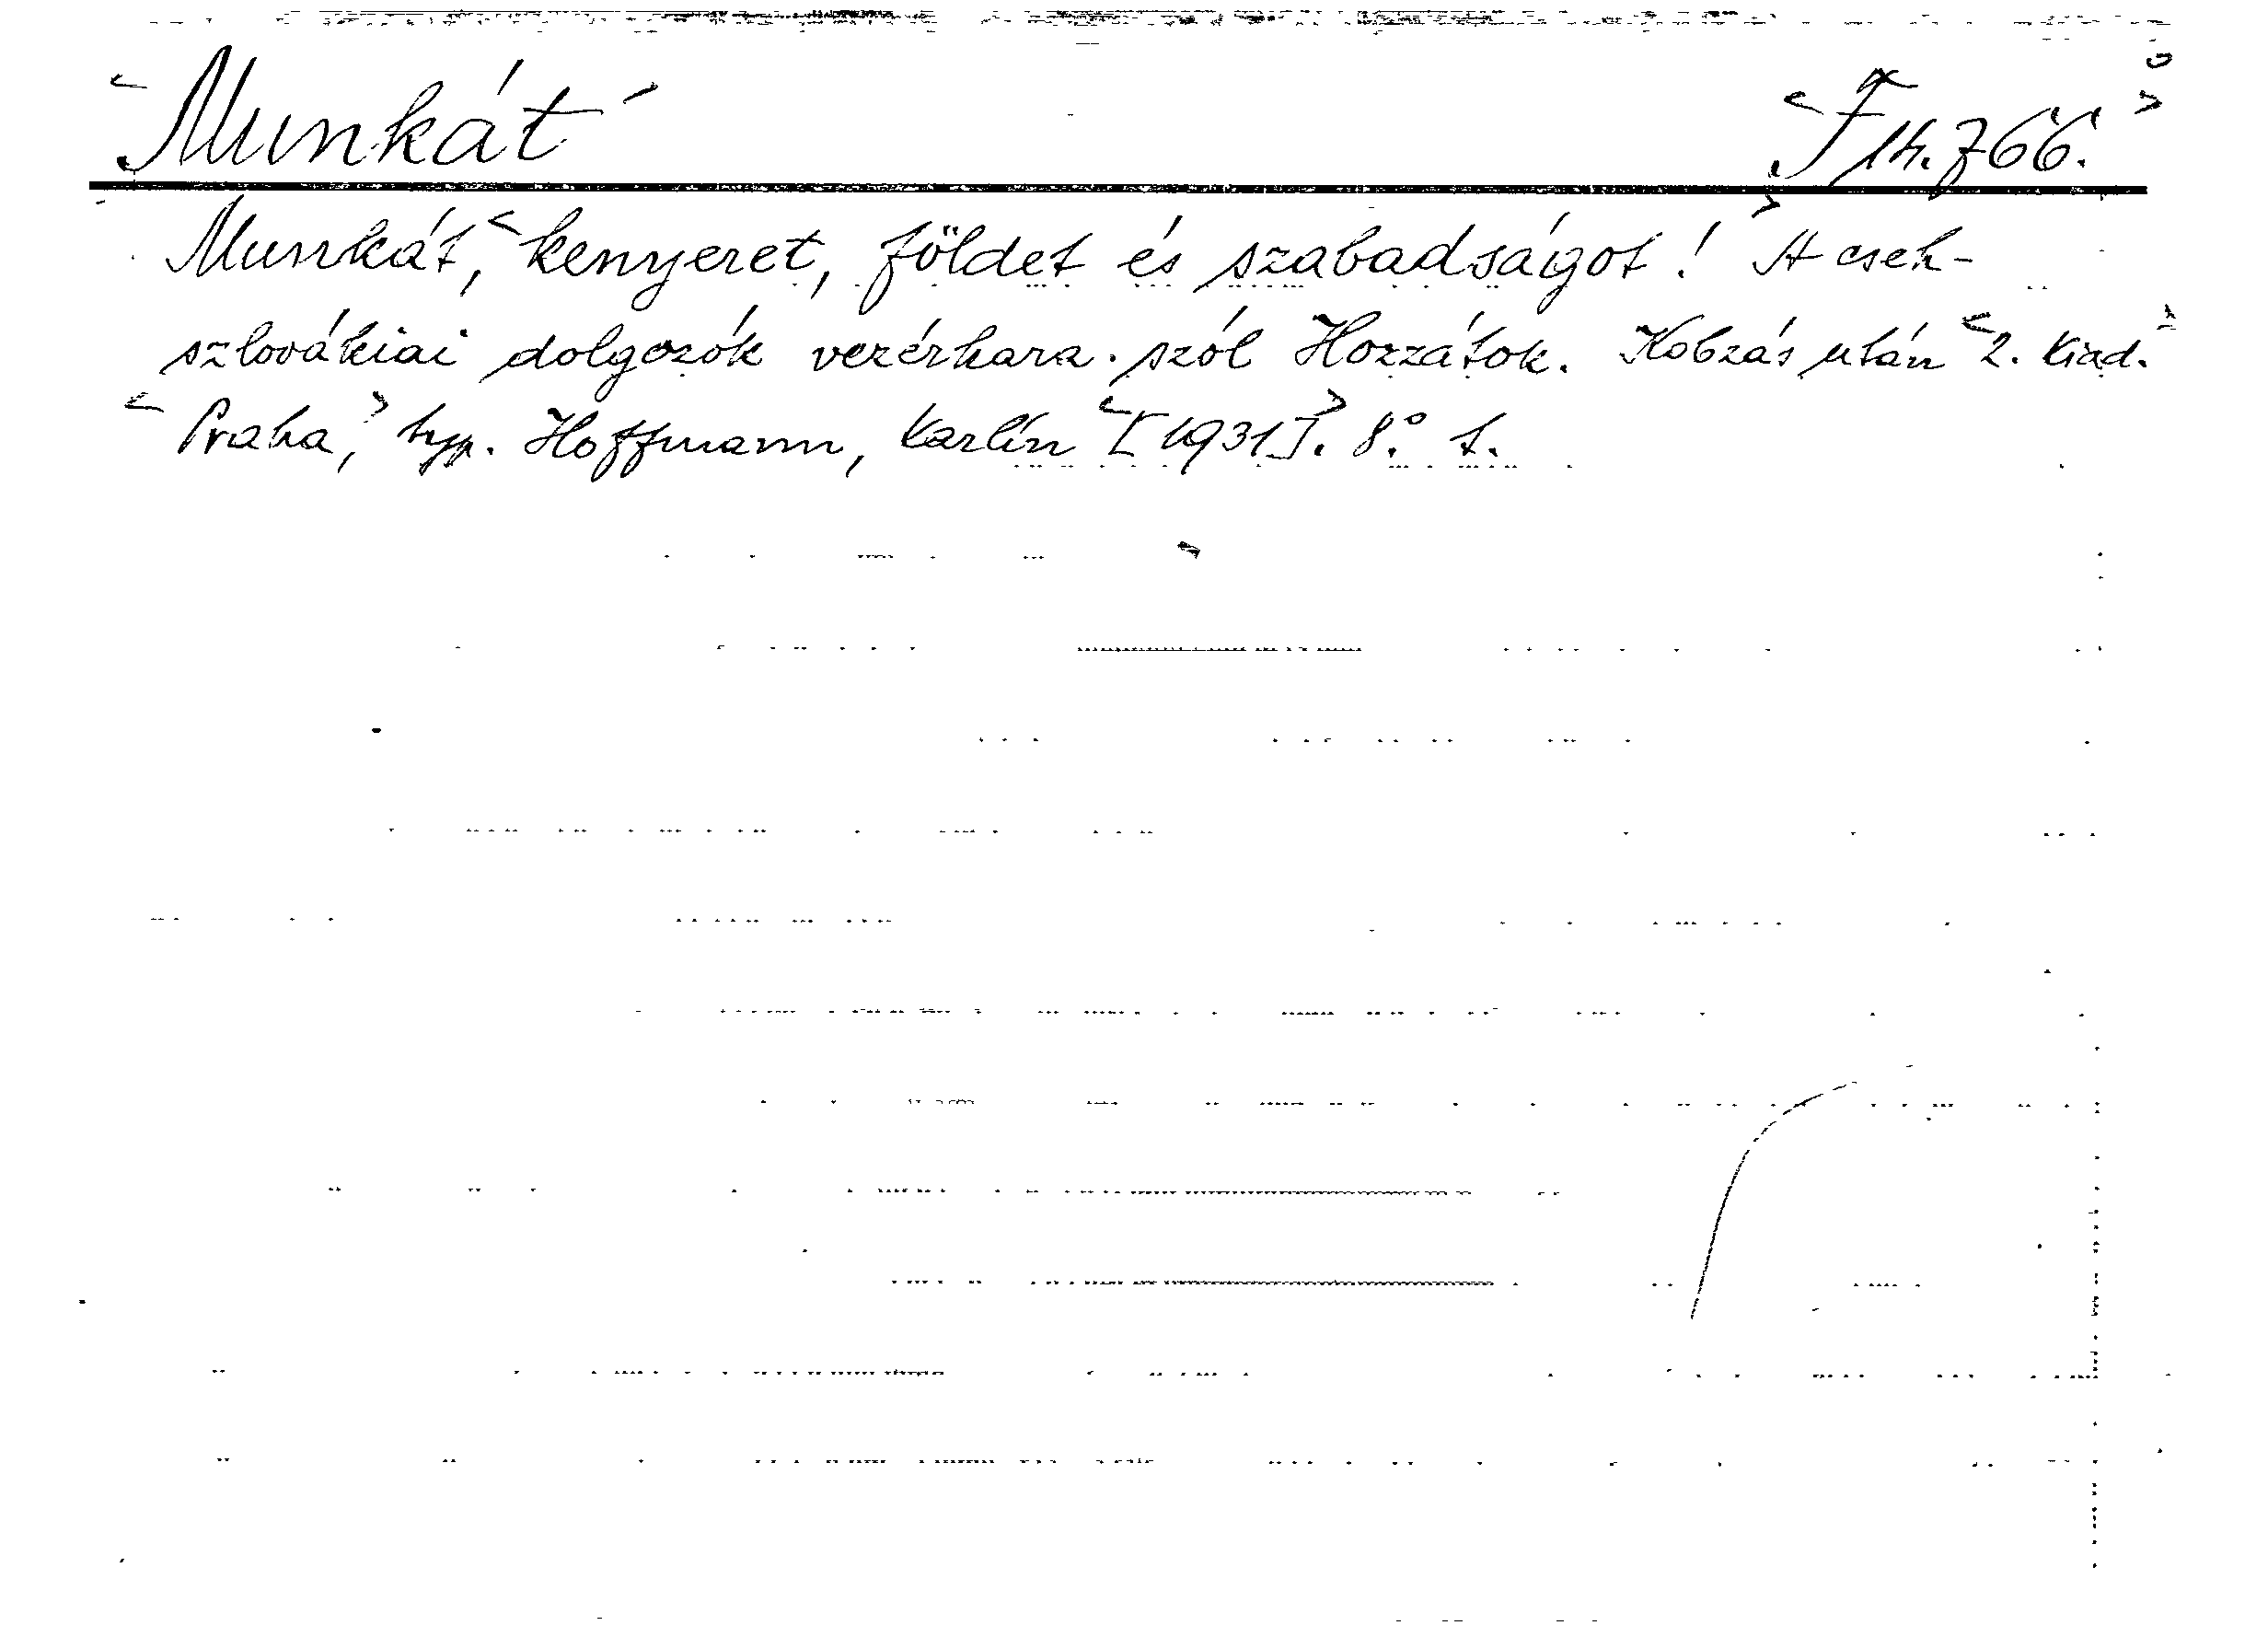 <Munkát> <F 14.766.>
Munkát, <kenyeret, földet és szabadságot!> A cseh-
szlovákiai dolgozók vezérkara szól Hozzátok. Kobzás után <2. kiad.>
<Praha,> typ. Hoffmann, Karlín <[1931]>. 8.° t.